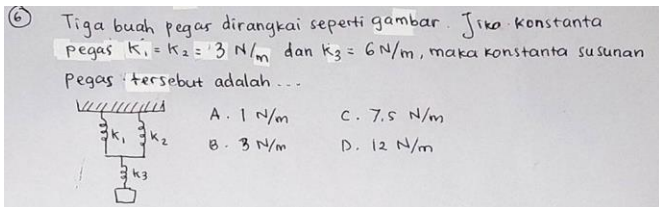 6 Tiga buah pegas dirangkai seperti gambar. Jika konstanta
pegas K₁ = K₂ = 3 N/m dan K₃ = 6 N/m, maka konstanta susunan
pegas tersebut adalah ...
A. 1 N/m C. 7.5 N/m
K₁ K₂ B. 3 N/m D. 12 N/m
K3